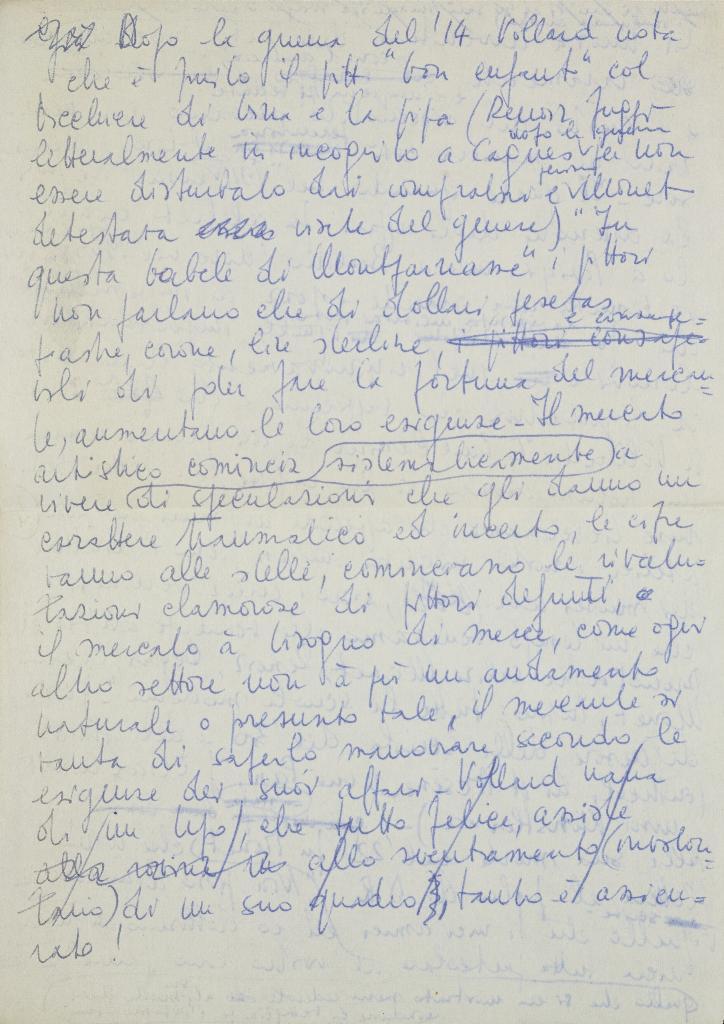 Dopo la guerra del '14 Vollard nota
che è finito il pitt "bon enfant" col
bicchiere di vino e la pipa (Renoir fuggì
dopo la guerra
letteralmente in incognito a Cagnes per non
essere disturbato dai compratori e Monet
detestava visite del genere) "In
questa babele di Montparnasse" i pittori
non parlano che di dollari pesetas
e consape=
piastre, corone, lire sterline, i pittori consape
voli di poter fare la fortuna del mercan=
te, aumentano le loro esigenze - Il mercato
artistico comincia sistematicamente a
vivere di speculazioni che gli danno un
carattere traumatico ed incerto, le cifre
vanno alle stelle, cominciano le rivalu=
tazioni clamorose di pittori defunti,
il mercato à bisogno di merce, come ogni
altro settore non à più un andamento
naturale o presunto tale, il mercante si
vanta di saperlo manovrare secondo le
esigenze dei suoi affari - Vollard narra
di un tipo, che tutto felice, assiste
allo sventramento (involon=
tario) di un suo quadro, tanto è assicu=
rato!